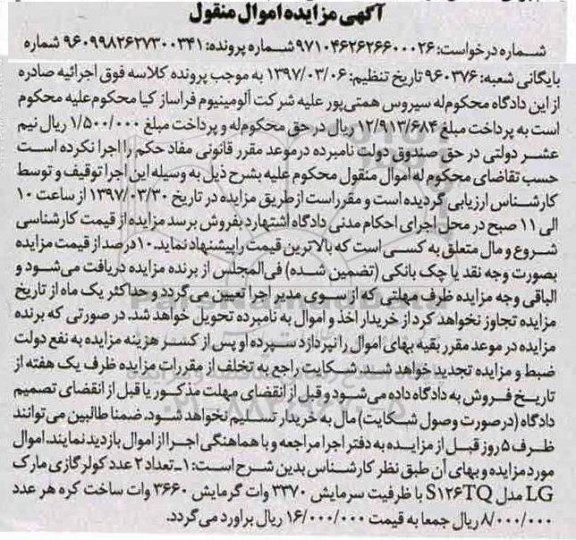 آگهی مزایده اموال منقول
شماره درخواست: ۹۷۱۰۴۶۲۶۲۶۶۰۰۰۲۶ شماره پرونده: ۹۶۰۹۹۸۲۶۲۷۳۰۰۳۴۱ شماره
بایگانی شعبه: ۹۶۰۳۷۶ تاریخ تنظیم: ۱۳۹۷/۰۳/۰۶ به موجب پرونده کلاسه فوق اجرائیه صادره
از این دادگاه محکوم‌له سیروس همتی‌پور علیه شرکت آلومینیوم فراساز کیا محکوم‌علیه محکوم
است به پرداخت مبلغ ۱۲/۹۱۳/۶۸۴ ریال در حق محکوم‌له و پرداخت مبلغ ۱/۵۰۰/۰۰۰ ریال نیم
عشر دولتی در حق صندوق دولت نامبرده در موعد مقرر قانونی مفاد حکم را اجرا نکرده است
حسب تقاضای محکوم له اموال منقول محکوم علیه بشرح ذیل به وسیله این اجرا توقیف و توسط
کارشناس ارزیابی گردیده است و مقرر است از طریق مزایده در تاریخ ۱۳۹۷/۰۳/۳۰ از ساعت ۱۰
الی ۱۱ صبح در محل اجرای احکام مدنی دادگاه اشتهارد بفروش برسد مزایده از قیمت کارشناسی
شروع و مال متعلق به کسی است که بالاترین قیمت را پیشنهاد نماید. ۱۰ درصد از قیمت مزایده
بصورت وجه نقد یا چک بانکی (تضمین شده) فی‌المجلس از برنده مزایده دریافت می‌شود و
الباقی وجه مزایده ظرف مهلتی که از سوی مدیر اجرا تعیین می گردد و حداکثر یک ماه از تاریخ
مزایده تجاوز نخواهد کرد از خریدار اخذ و اموال به نامبرده تحویل خواهد شد. در صورتی که برنده
مزایده در موعد مقرر بقیه بهای اموال را نپردازد سپرده او پس از کسر هزینه مزایده به نفع دولت
ضبط و مزایده تجدید خواهد شد. شکایت راجع به تخلف از مقررات مزایده ظرف یک هفته از
تاریخ فروش به دادگاه داده می‌شود و قبل از انقضای مهلت مذکور یا قبل از انقضای تصمیم
دادگاه (در صورت وصول شکایت) مال به خریدار تسلیم نخواهد شود. ضمنا طالبین می‌توانند
ظرف ۵ روز قبل از مزایده به دفتر اجرا مراجعه و با هماهنگی اجرا از اموال بازدید نمایند. اموال
مورد مزایده و بهای آن طبق نظر کارشناس بدین شرح است: ۱ـ تعداد ۲ عدد کولر گازی مارک
LG مدل S۱۲۶TQ با ظرفیت سرمایش ۳۳۷۰ وات گرمایش ۳۶۶۰ وات ساخت کره هر عدد
۸/۰۰۰/۰۰۰ ریال جمعا به قیمت ۱۶/۰۰۰/۰۰۰ ریال براورد می گردد.